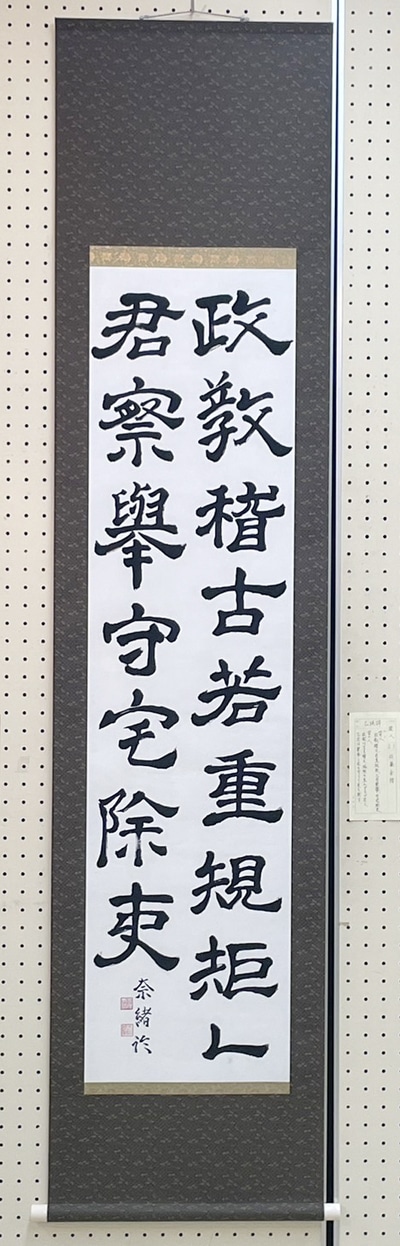 政敎稽古若重規矩乙
君察舉守宅除吏
奈緒臨